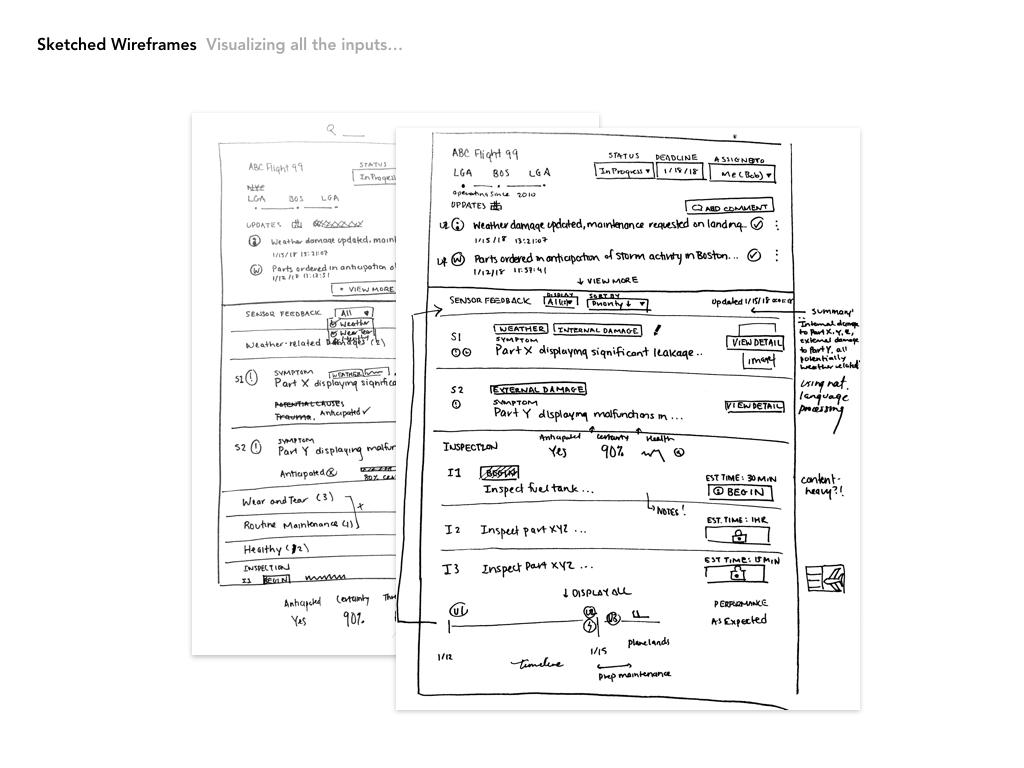 Sketched Wireframes Visualizing all the inputs...
ABC Flight 99
STATUS
In Progress
NYC
LGA BOS LGA
UPDATES
Weather damage updated, main
1/15/18 13:21:07
W Parts ordered in anticipation o
VIEW MORE
SENSOR FEEDBACK All
Weather
Wear
Weather-related Damages (2)
SYMPTOM WEATHER
S1 ! Part X displaying signifca
POTENTIAL CAUSES
Trauma, Anticipated ✓
SYMPTOM
S2 ! Part Y displaying malfun
Anticipated
80% cer
Wear and Tear (3)
+
Routine Maintenance (1)
Healthy
INSPECTION
I1 BEGIN
Anticipated Certainty
Yes 90%
ABC Flight 99
STATUS DEADLINE ASSIGNED TO
In Progress ▾ 1/18/18 Me (Bob) ▾
LGA BOS LGA
operating since 2010
UPDATES
ADD COMMENT
Weather damage updated, maintenance requested on landing.
1/15/18 13:21:07
W Parts ordered in anticipation of storm activity in Boston...
1/12/18 11:57:41
↓ VIEW MORE
DISPLAY SORT BY
SENSOR FEEDBACK All ▾ Priority ↓ ▾ Updated 1/15/18
WEATHER INTERNAL DAMAGE !
S1 SYMPTOM
Part X displaying significant leakage..
VIEW DETAIL
S2 EXTERNAL DAMAGE
SYMPTOM
Part Y displaying malfunctions in ...
VIEW DETAIL
Anticipated Certainty Health
INSPECTION Yes 90%
I1 BEGIN
Inspect fuel tank ...
EST TIME: 30 MIN
BEGIN
NOTES!
I2 Inspect part XYZ ...
EST. TIME: 1HR
I3 Inspect Part XYZ ...
EST TIME: 15 MIN
↓ DISPLAY ALL
PERFORMANCE
As Expected
U1
U3
plane lands
1/12
1/15
timeline
prep maintenance
summary:
"Internal damage
to Part X, Y, Z,
external damage
to Part Y, all
potentially
weather related"
using nat.
language
processing
content-
heavy?!